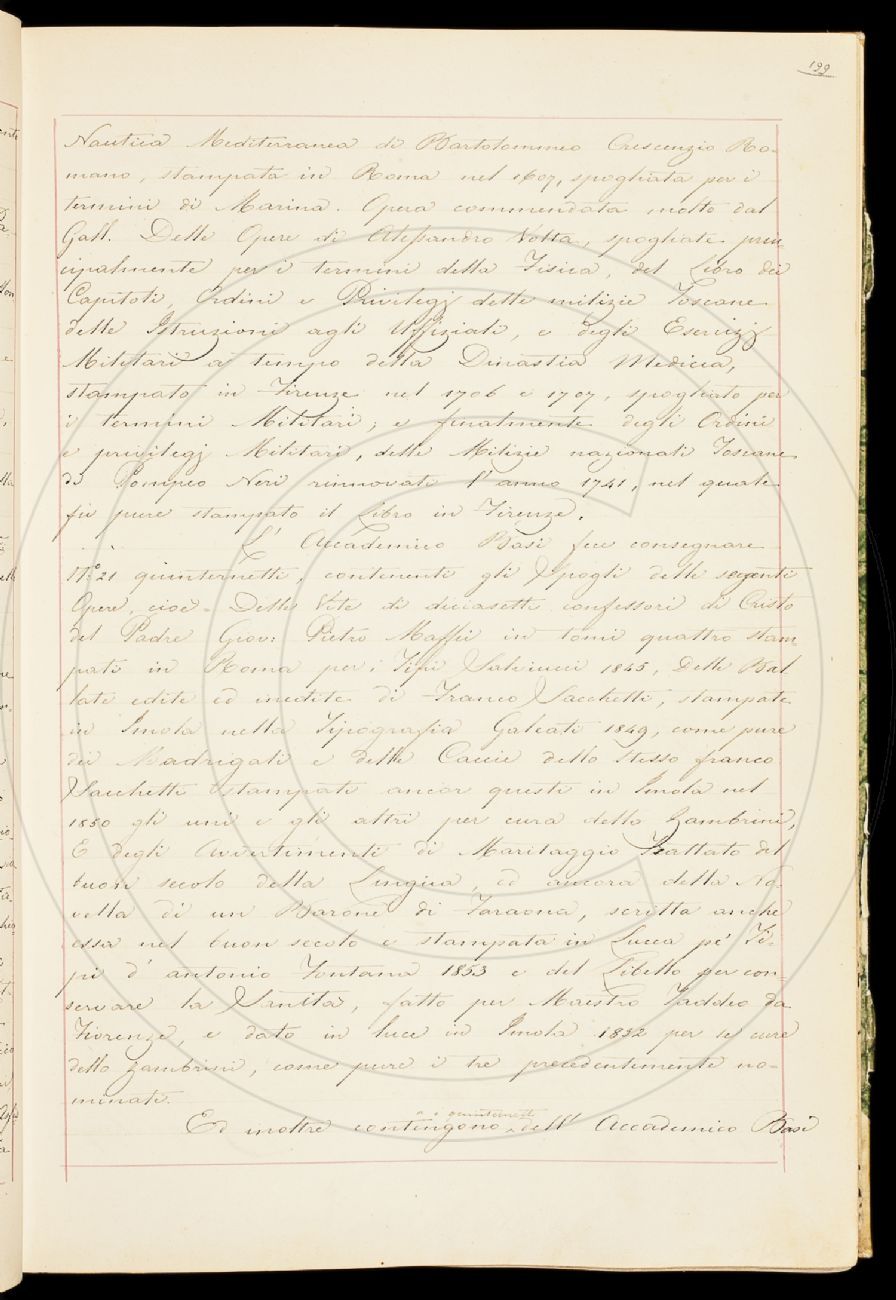 199
Nautica Mediterranea di Bartolommeo Crescenzio Ro-
mano, stampata in Roma nel 1607, spogliata per i
termini di Marina. Opera commendata molto dal
Gall. Delle Opere di Alessandro Volta, spogliate prin
cipalmente per i termini della Fisica, del Libro dei
Capitoli, Ordini e Privilegj delle milizie Toscane
delle Istruzioni agli Uffiziali, e degli Esercizj
Militari a tempo della Dinastia Medicea,
stampato in Firenze nel 1706 e 1707, spogliato per
i termini Militari; e finalmente degli Ordini
e privilegj Militari, delle Milizie nazionali Toscane
di Pompeo Neri rinnovati l'anno 1741, nel quale
fu pure stampato il Libro in Firenze.
L'Accademico Basi fece consegnare
N.º 21 quinternetti, contenenti gli Spogli delle seguenti
Opere, cioè = Delle Vite di diciasette confessori di Cristo
del Padre Giov: Pietro Maffei in tomi quattro stam-
pati in Roma per i Tipi Salviucci 1845, Delle Bal
late edite ed inedite di Franco Sacchetti, stampate
in Imola nella Tipografia Galeati 1849, come pure
dei Madrigali e delle Caccie dello stesso franco
Sacchetti stampati ancor questi in Imola nel
1850 gli uni e gli altri per cura dello Zambrini,
E degli Avvertimenti di Maritaggio Trattato del
buon secolo della Lingua, ed ancora della No-
vella di un Barone di Faraona, scritta anche
essa nel buon secolo e stampata in Lucca pe' Ti-
pi d'antonio Fontana 1853 e del Libello per con-
servare la Sanità, fatto per Maestro Taddeo da
Fiorenze, e dato in luce in Imola 1852 per se cure
dello Zambrini, come pure i tre precedentemente no-
minati.
Ed inoltre contengono dell'Accademico Basi